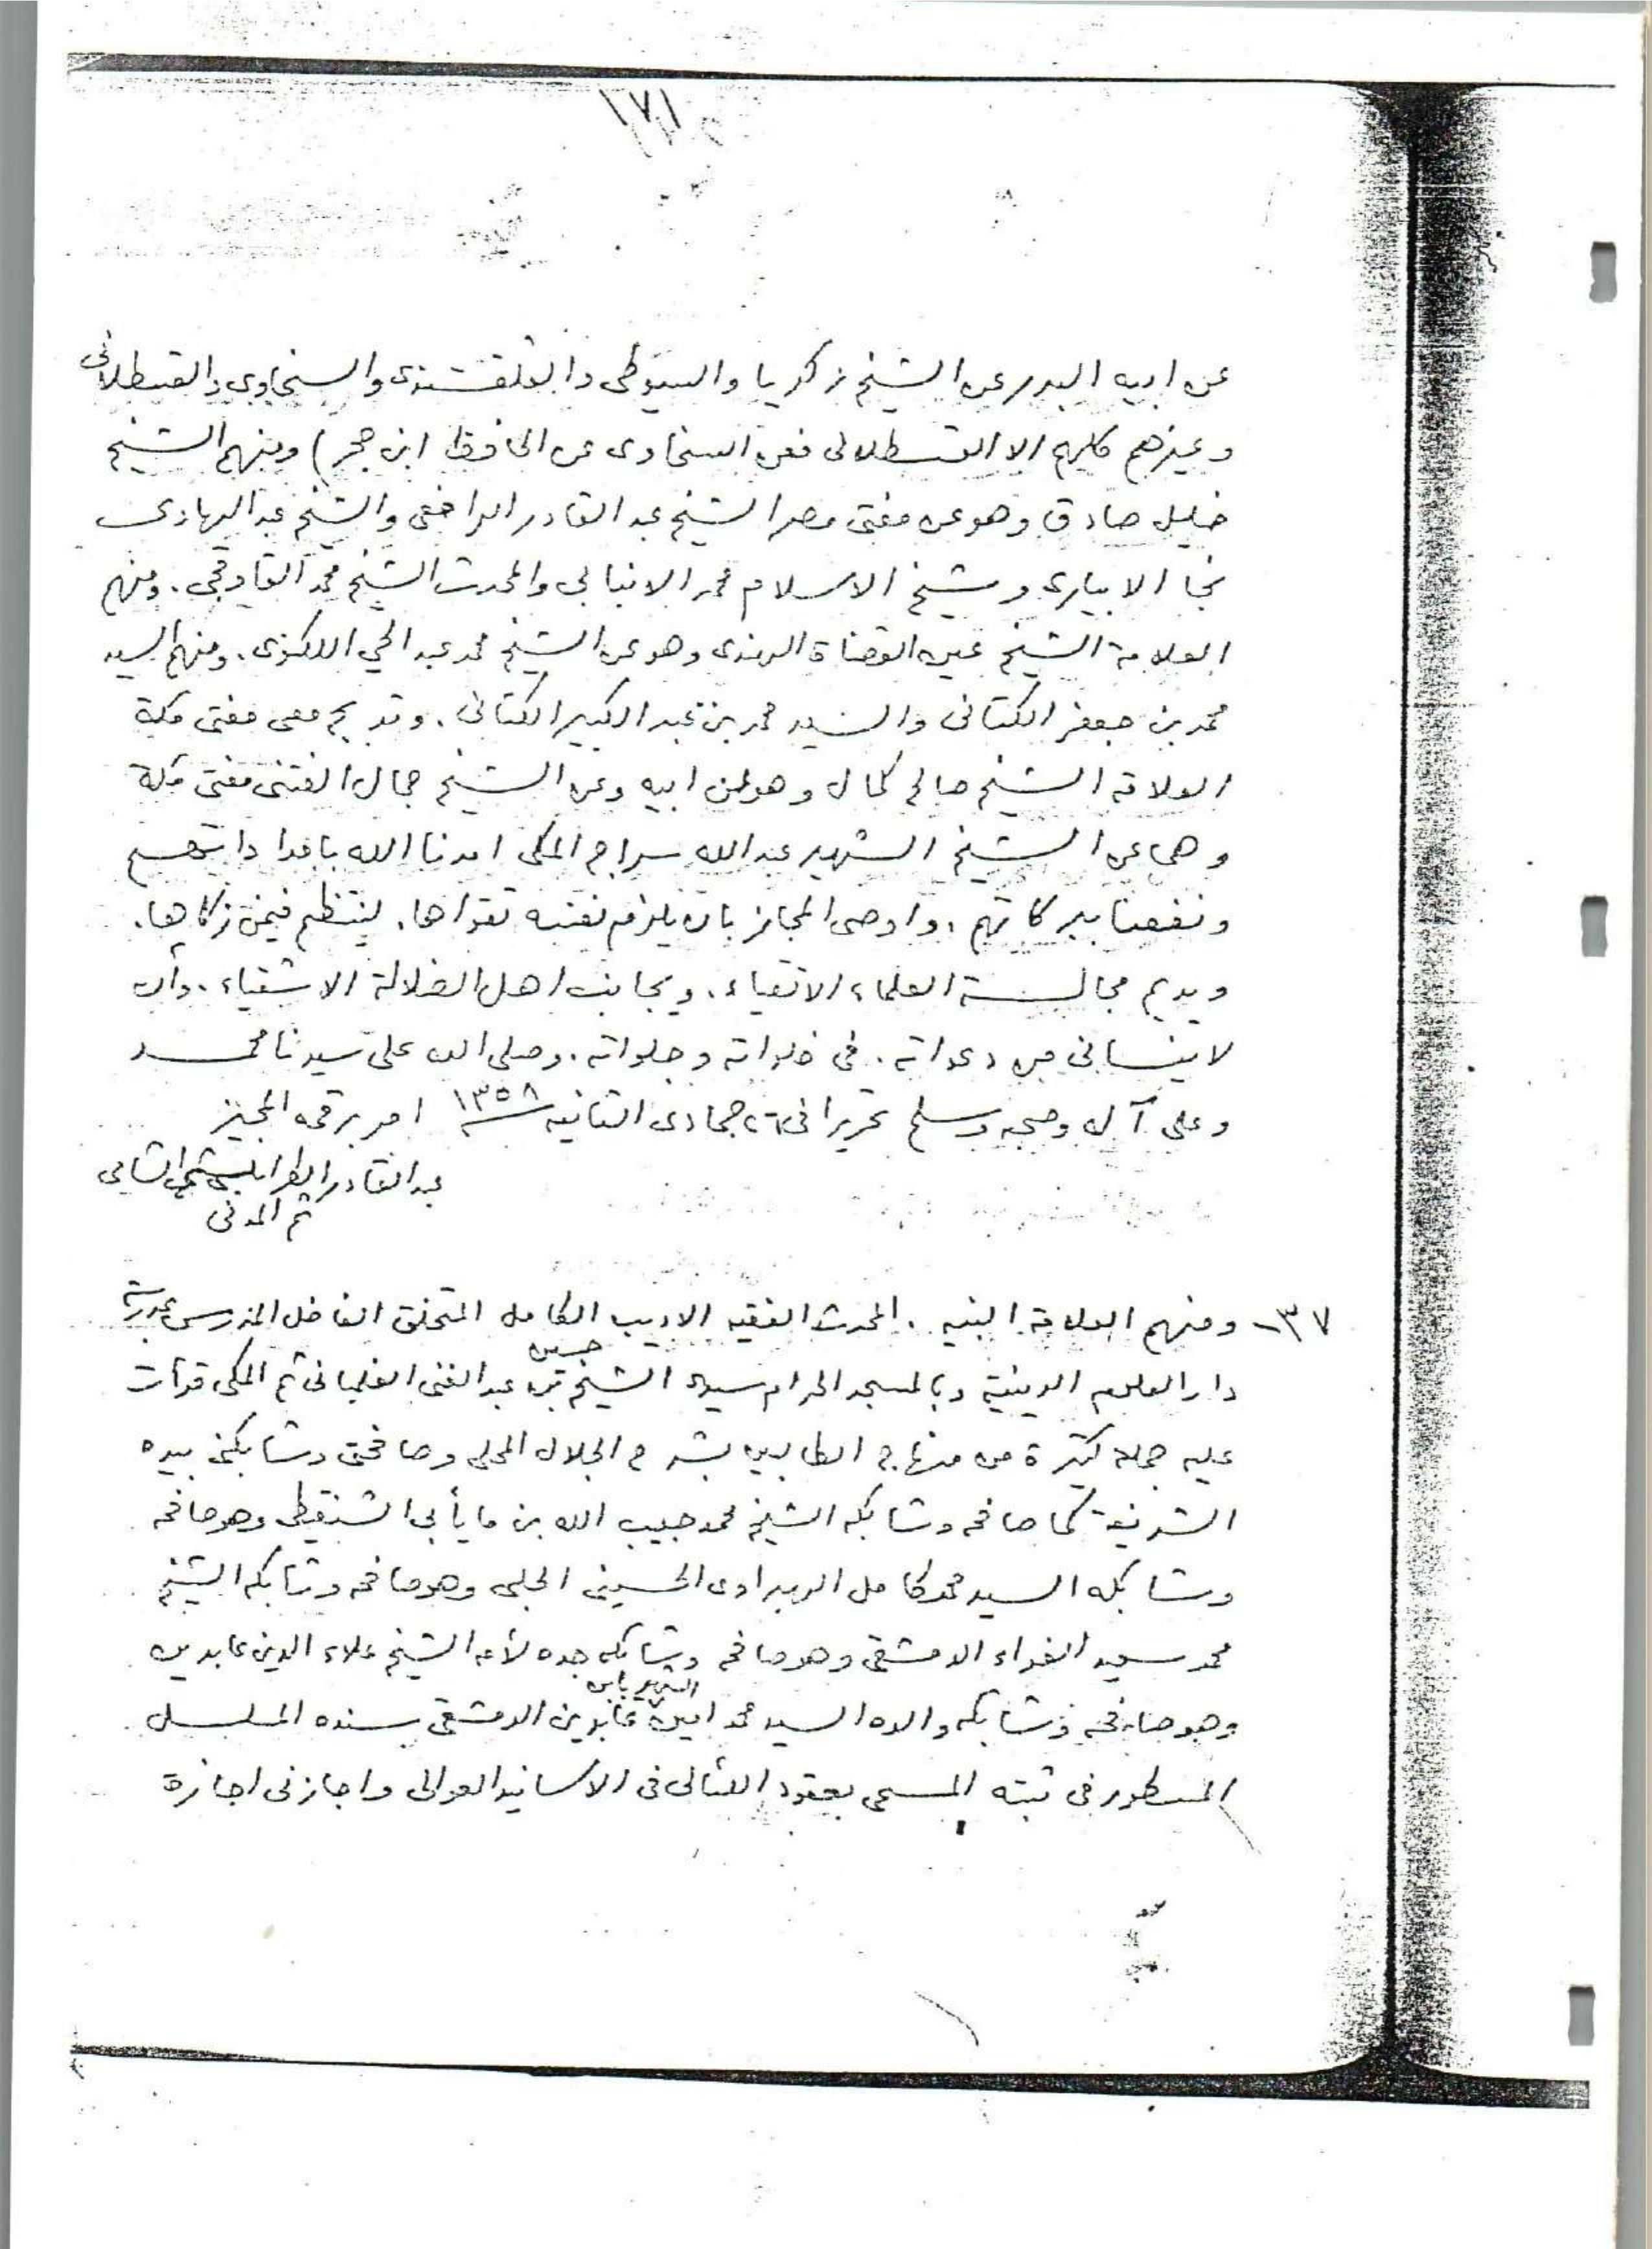 ١٧١
عن ابيه البدر عن الشيخ زكريا والسيوطى والقلقشندى والسخاوى والقسطلانى
وغيرهم كلهم الا القسطلانى فعن السخاوى عن الحافظ ابن حجر) ومنهم الشيخ
خليل صادق وهو عن مفتى مصر الشيخ عبد القادر الرافعى والشيخ عبد الهادى
نجا الابيارى وشيخ الاسلام محمد الانبابى والمحدث الشيخ محمد القاوقجى . ومنهم
العلامة الشيخ عين القضاة الهندى وهو عن الشيخ محمد عبد الحي اللكنوى . ومنهم السيد
محمد بن جعفر الكتانى والسيد محمد بن عبد الكبير الكتانى . وتدبج معى مفتى مكة
العلامة الشيخ صالح كمال وهو عن ابيه وعن الشيخ جمال الفتنى مفتى مكة
وهما عن الشيخ الشهير عبد الله سراج المكى امدنا الله بامداداتهم
ونفعنا ببركاتهم . واوصى المجاز بان يلزم نفسه تقواها . لينتظم فيمن زكاها .
ويديم مجالسة العلماء الاتقياء . ويجانب اهل الضلالة الاشقياء . وان
لا ينسانى من دعواته . فى خلواته وجلواته . وصلى الله على سيدنا محمد
وعلى آله وصحبه وسلم تحريرا فى ٢٦ جمادى الثانيه سنة ١٣٥٨ امر برقمه المجيز
عبد القادر الطرابلسى الشلبى الشامى
ثم المدنى
٣٧- ومنهم العلامة النبيه . المحدث الفقيه الاديب الكامل المتحقق الفاضل المدرس بمدرسة
دار العلوم الدينية وبالمسجد الحرام سيدى الشيخ حسين بن عبد الغنى الفلمبانى ثم المكى قرأت
عليه جملة كثيرة من منهاج الطالبين بشرح الجلال المحلى وصافحنى وشابكنى بيده
الشريفة كما صافحه وشابكه الشيخ محمد حبيب الله بن مايأبى الشنقيطى وهو صافحه
وشابكه السيد محمد كامل الهبراوى الحسينى الحلبى وهو صافحه وشابكه الشيخ
محمد سعيد الفراء الدمشقى وهو صافحه وشابكه جده لأمه الشيخ علاء الدين عابدين
وهو صافحه وشابكه والده السيد محمد امين الشهير بابن عابدين الدمشقى بسنده المسلسل
المسطور فى ثبته المسمى بعقود اللئالى فى الاسانيد العوالى واجازنى اجازة